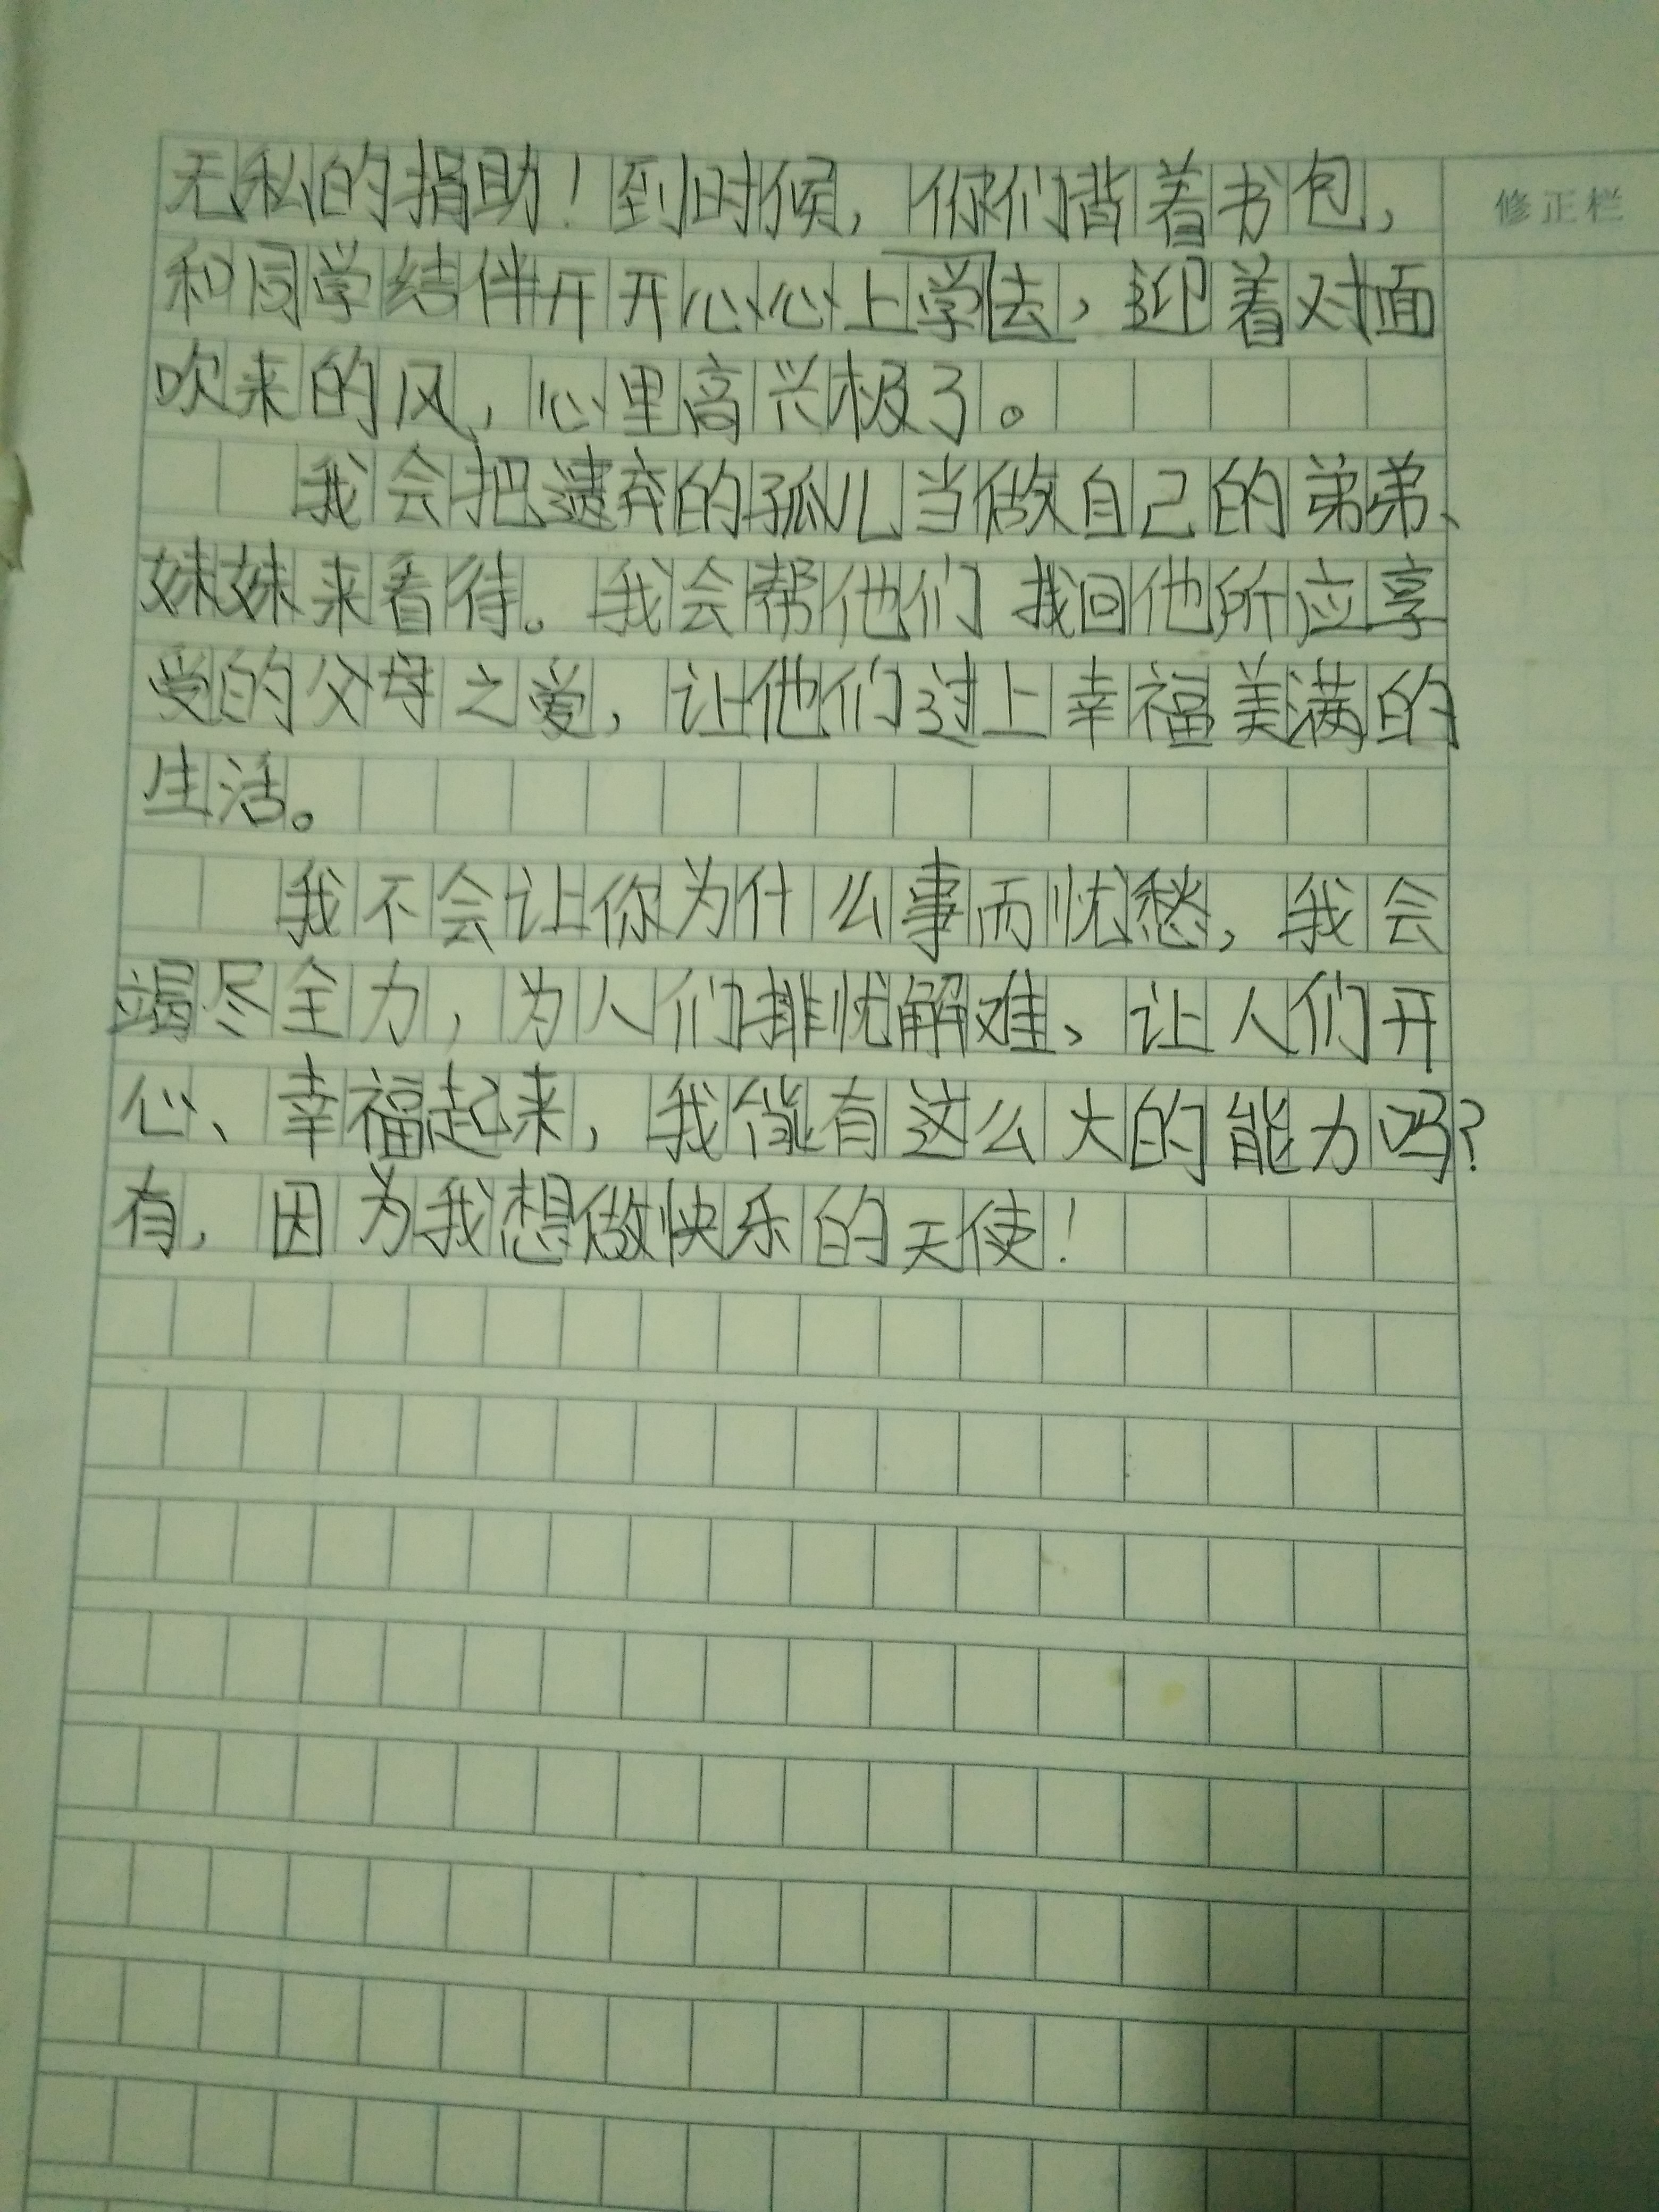 无私的捐助！到时候，你们背着书包，
修正栏
和同学结伴开开心心上学去，迎着对面
吹来的风，心里高兴极了。
我会把遗弃的孤儿当做自己的弟弟、
妹妹来看待。我会帮他们找回他所应享
受的父母之爱，让他们过上幸福美满的
生活。
我不会让你为什么事而忧愁，我会
竭尽全力，为人们排忧解难、让人们开
心、幸福起来，我能有这么大的能力吗？
有，因为我想做快乐的天使！